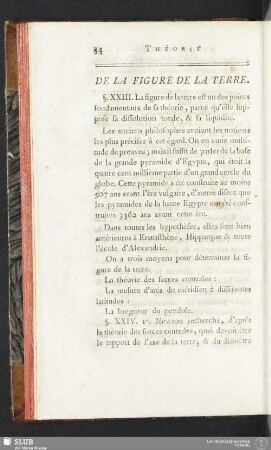 54 THÉORIE
DE LA FIGURE DE LA TERRE.
§. XXIII. La figure de la terre est un des points
fondamentaux de sa théorie, parce qu'elle sup-
pose sa dissolution totale, & sa liquidité.
Les anciens philosophes avoient les notions
les plus précises à cet égard. On en a une multi-
tude de preuves ; mais il suffit de parler de la base
de la grande pyramide d'Egypte, qui étoit la
quatre cent millieme partie d'un grand cercle du
globe. Cette pyramide a été construite au moins
907 ans avant l'ère vulgaire, d'autres disent que
les pyramides de la haute Egypte ont été con-
struites 3362 ans avant cette ère.
Dans toutes les hypothèses, elles sont bien
antérieures à Eratosthène, Hipparque & toute
l'école d'Alexandrie.
On a trois moyens pour déterminer la fi-
gure de la terre.
La théorie des forces centrales :
La mesure d'arcs du méridien à différentes
latitudes :
La longueur du pendule.
§. XXIV. 1°. Newton rechercha, d'après
la théorie des forces centrales, quel devoit être
le rapport de l'axe de la terre, & du diametre
SLUB